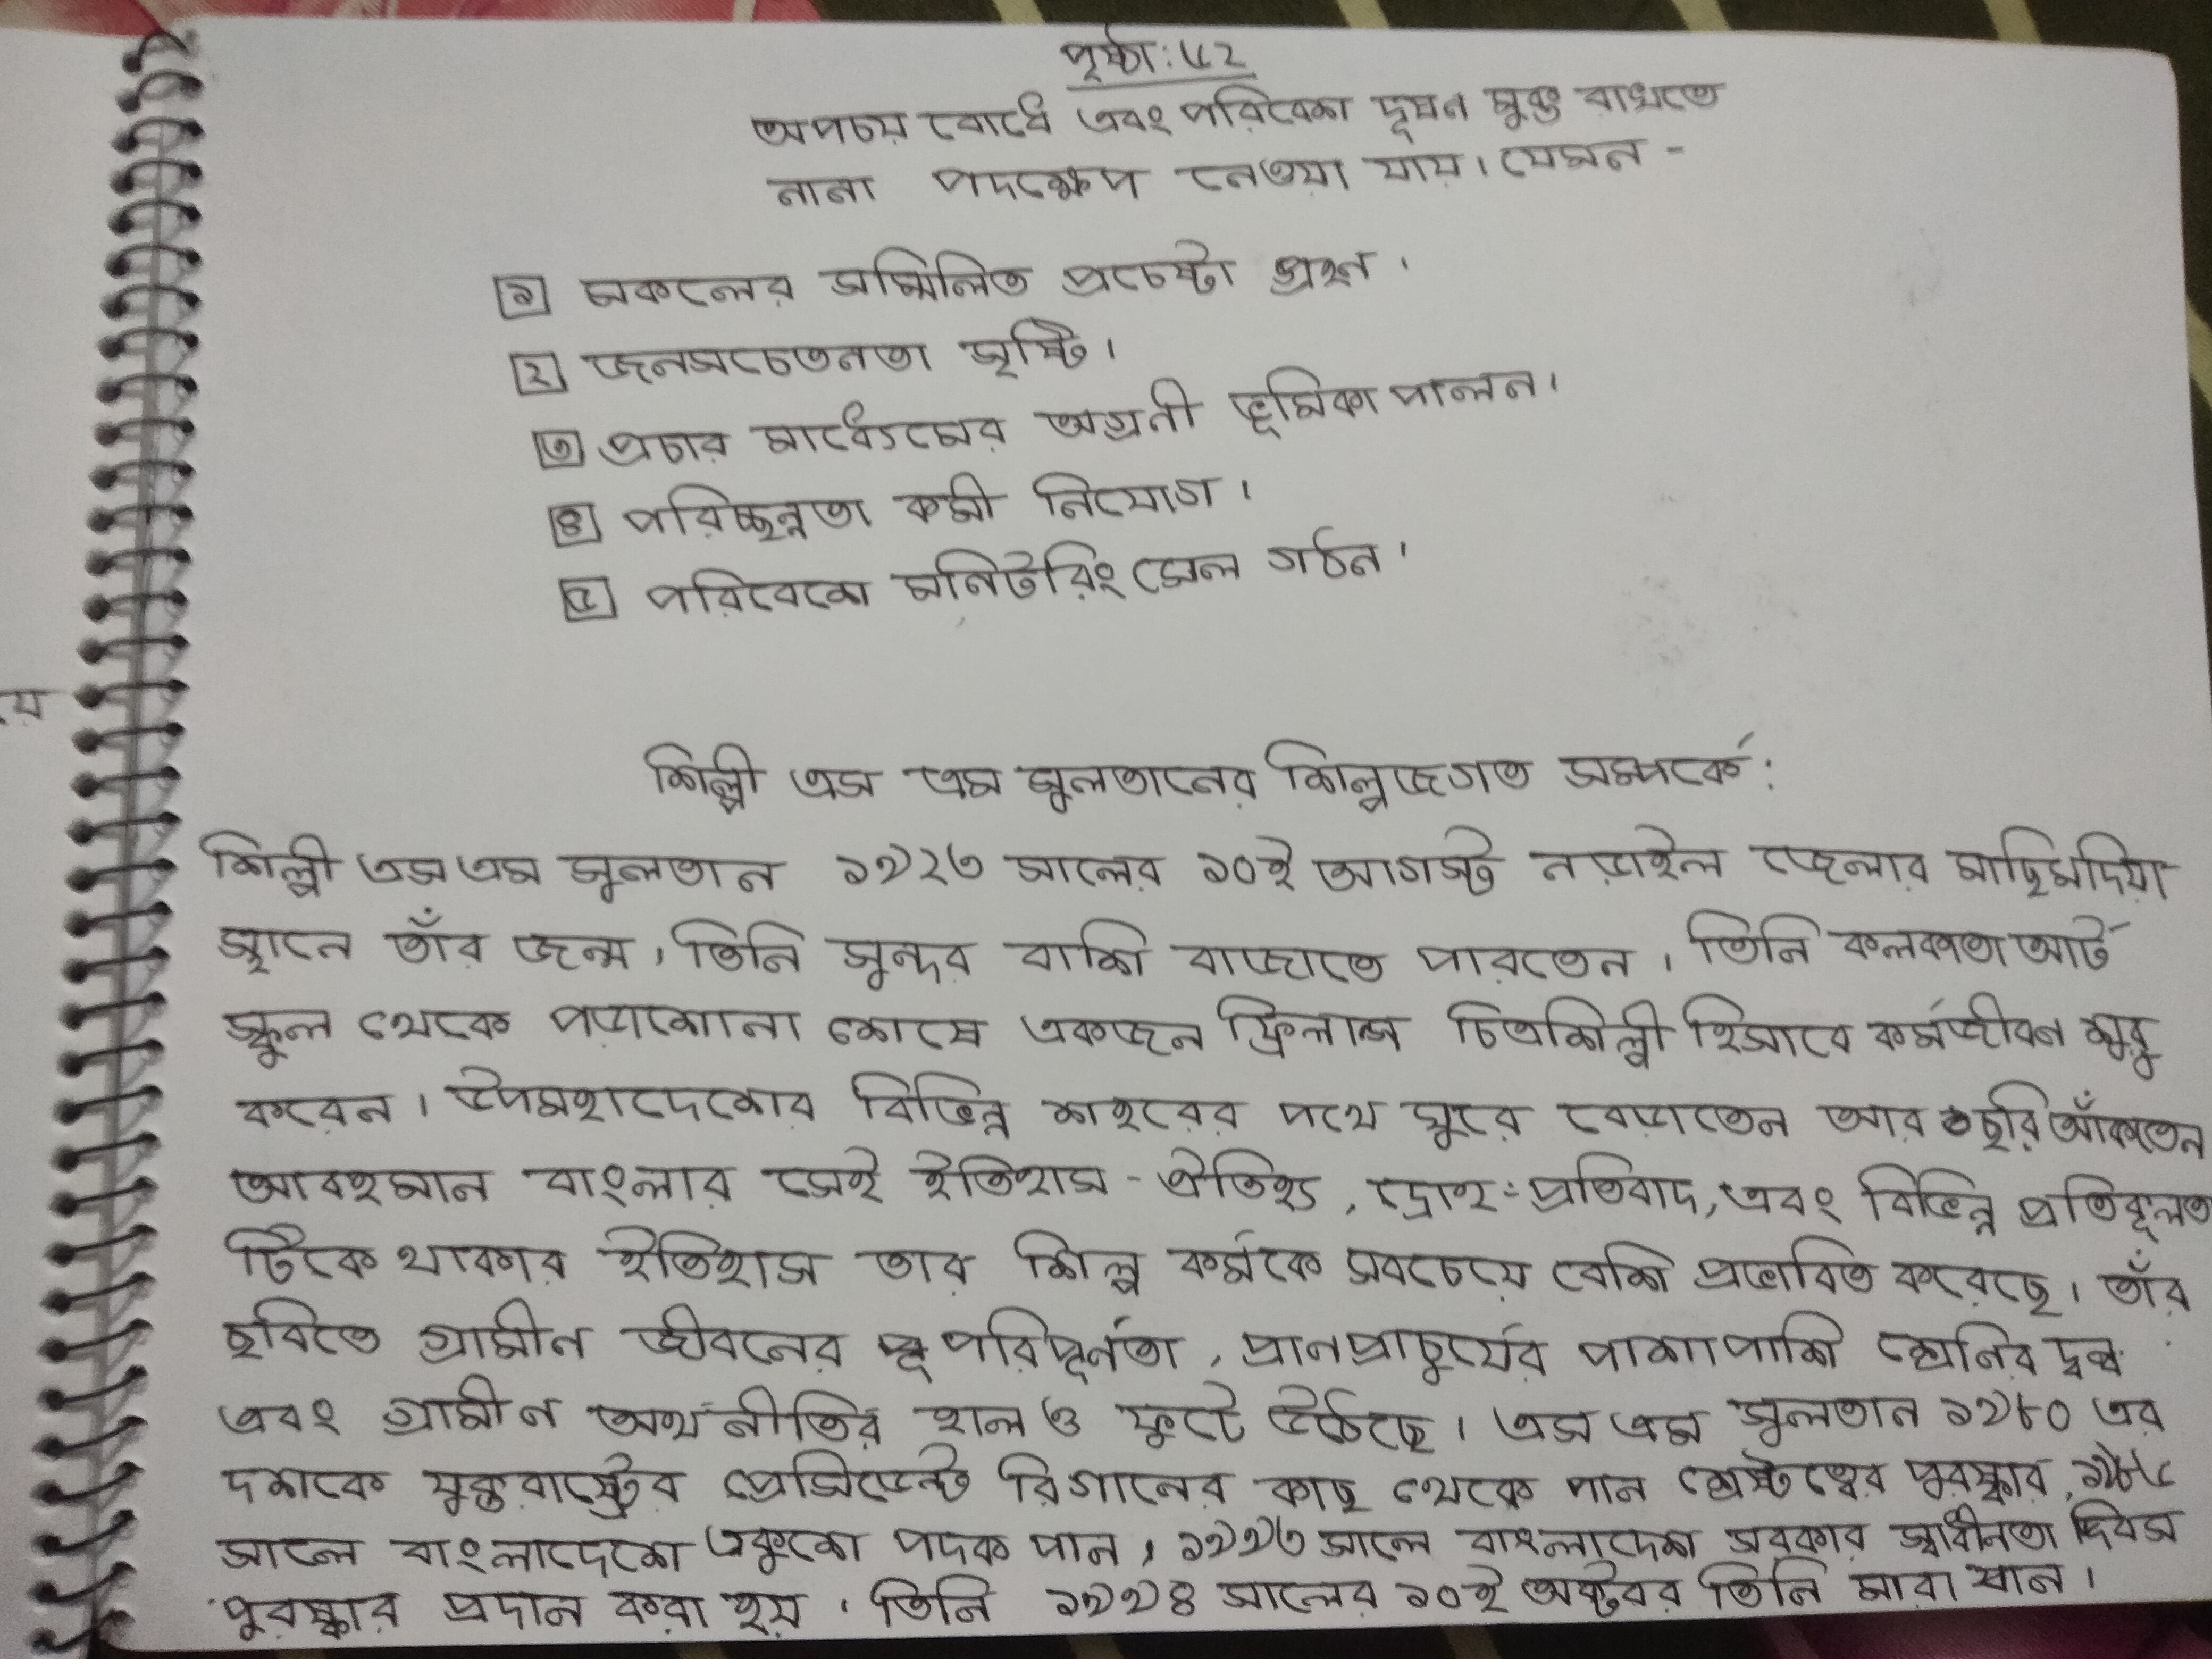 পৃষ্ঠা: ৫২
অপচয় রোধে এবং পরিবেশ দূষন মুক্ত রাখতে
নানা পদক্ষেপ নেওয়া যায়। যেমন -
১ সকলের সম্মিলিত প্রচেষ্টা গ্রহন।
২ জনসচেতনতা সৃষ্টি।
৩ প্রচার মাধ্যমের অগ্রনী ভূমিকা পালন।
৪ পরিচ্ছন্নতা কর্মী নিয়োগ।
৫ পরিবেশে মনিটরিং সেল গঠন।
য়
শিল্পী এস এম সুলতানের শিল্পজগত সম্পর্কে:
শিল্পী এস এম সুলতান ১৯২৩ সালের ১০ই আগস্ট নড়াইল জেলার মাছিমদিয়া
স্থানে তাঁর জন্ম। তিনি সুন্দর বাশি বাজাতে পারতেন। তিনি কলকাতা আর্ট
স্কুল থেকে পড়াশোনা শেষে একজন ফ্রিলান্স চিত্রশিল্পী হিসাবে কর্মজীবন শুরু
করেন। উপমহাদেশের বিভিন্ন শহরের পথে ঘুরে বেড়াতেন আর ছবি আঁকতেন
আবহমান বাংলার সেই ইতিহাস - ঐতিহ্য, দ্রোহ-প্রতিবাদ, এবং বিভিন্ন প্রতিকূলত
টিকে থাকার ইতিহাস তার শিল্প কর্মকে সবচেয়ে বেশি প্রভাবিত করেছে। তাঁর
ছবিতে গ্রামীন জীবনের পরিপূর্নতা, প্রানপ্রাচুর্যের পাশাপাশি শ্রেনির দ্বন্দ্ব
এবং গ্রামীন অর্থনীতির হাল ও ফুটে উঠেছে। এস এম সুলতান ১৯৮০ এর
দশকে যুক্তরাষ্ট্রের প্রেসিডেন্ট রিগানের কাছ থেকে পান শ্রেষ্টত্বের পুরস্কার, ১৯৮৫
সালে বাংলাদেশে একুশে পদক পান, ১৯৯৩ সালে বাংলাদেশ সরকার স্বাধীনতা দিবস
পুরস্কার প্রদান করা হয়। তিনি ১৯৯৪ সালের ১০ই অক্টবর তিনি মারা যান।